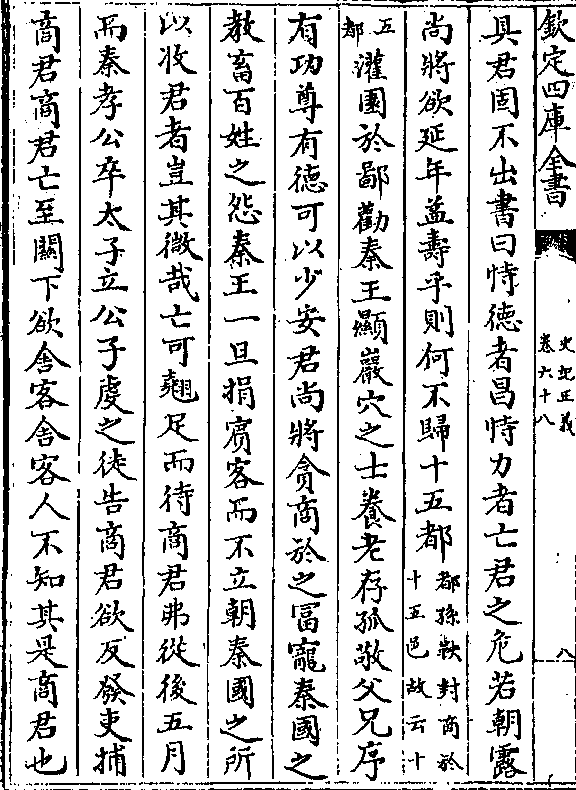 欽定四庫全書
史記正義
卷六十八
八
具君固不出書曰恃德者昌恃力者亡君之危若朝露
尚將欲延年益壽乎則何不歸十五都
都孫鞅封商於
十五邑故云十
五
都
灌園於鄙勸秦王顯巖穴之士養老存孤敬父兄序
有功尊有德可以少安君尚將貪商於之富寵秦國之
教畜百姓之怨秦王一旦捐賓客而不立朝秦國之所
以收君者豈其微哉亡可翹足而待商君弗從後五月
而秦孝公卒太子立公子虔之徒告商君欲反發吏捕
商君商君亡至關下欲舍客舍客人不知其是商君也